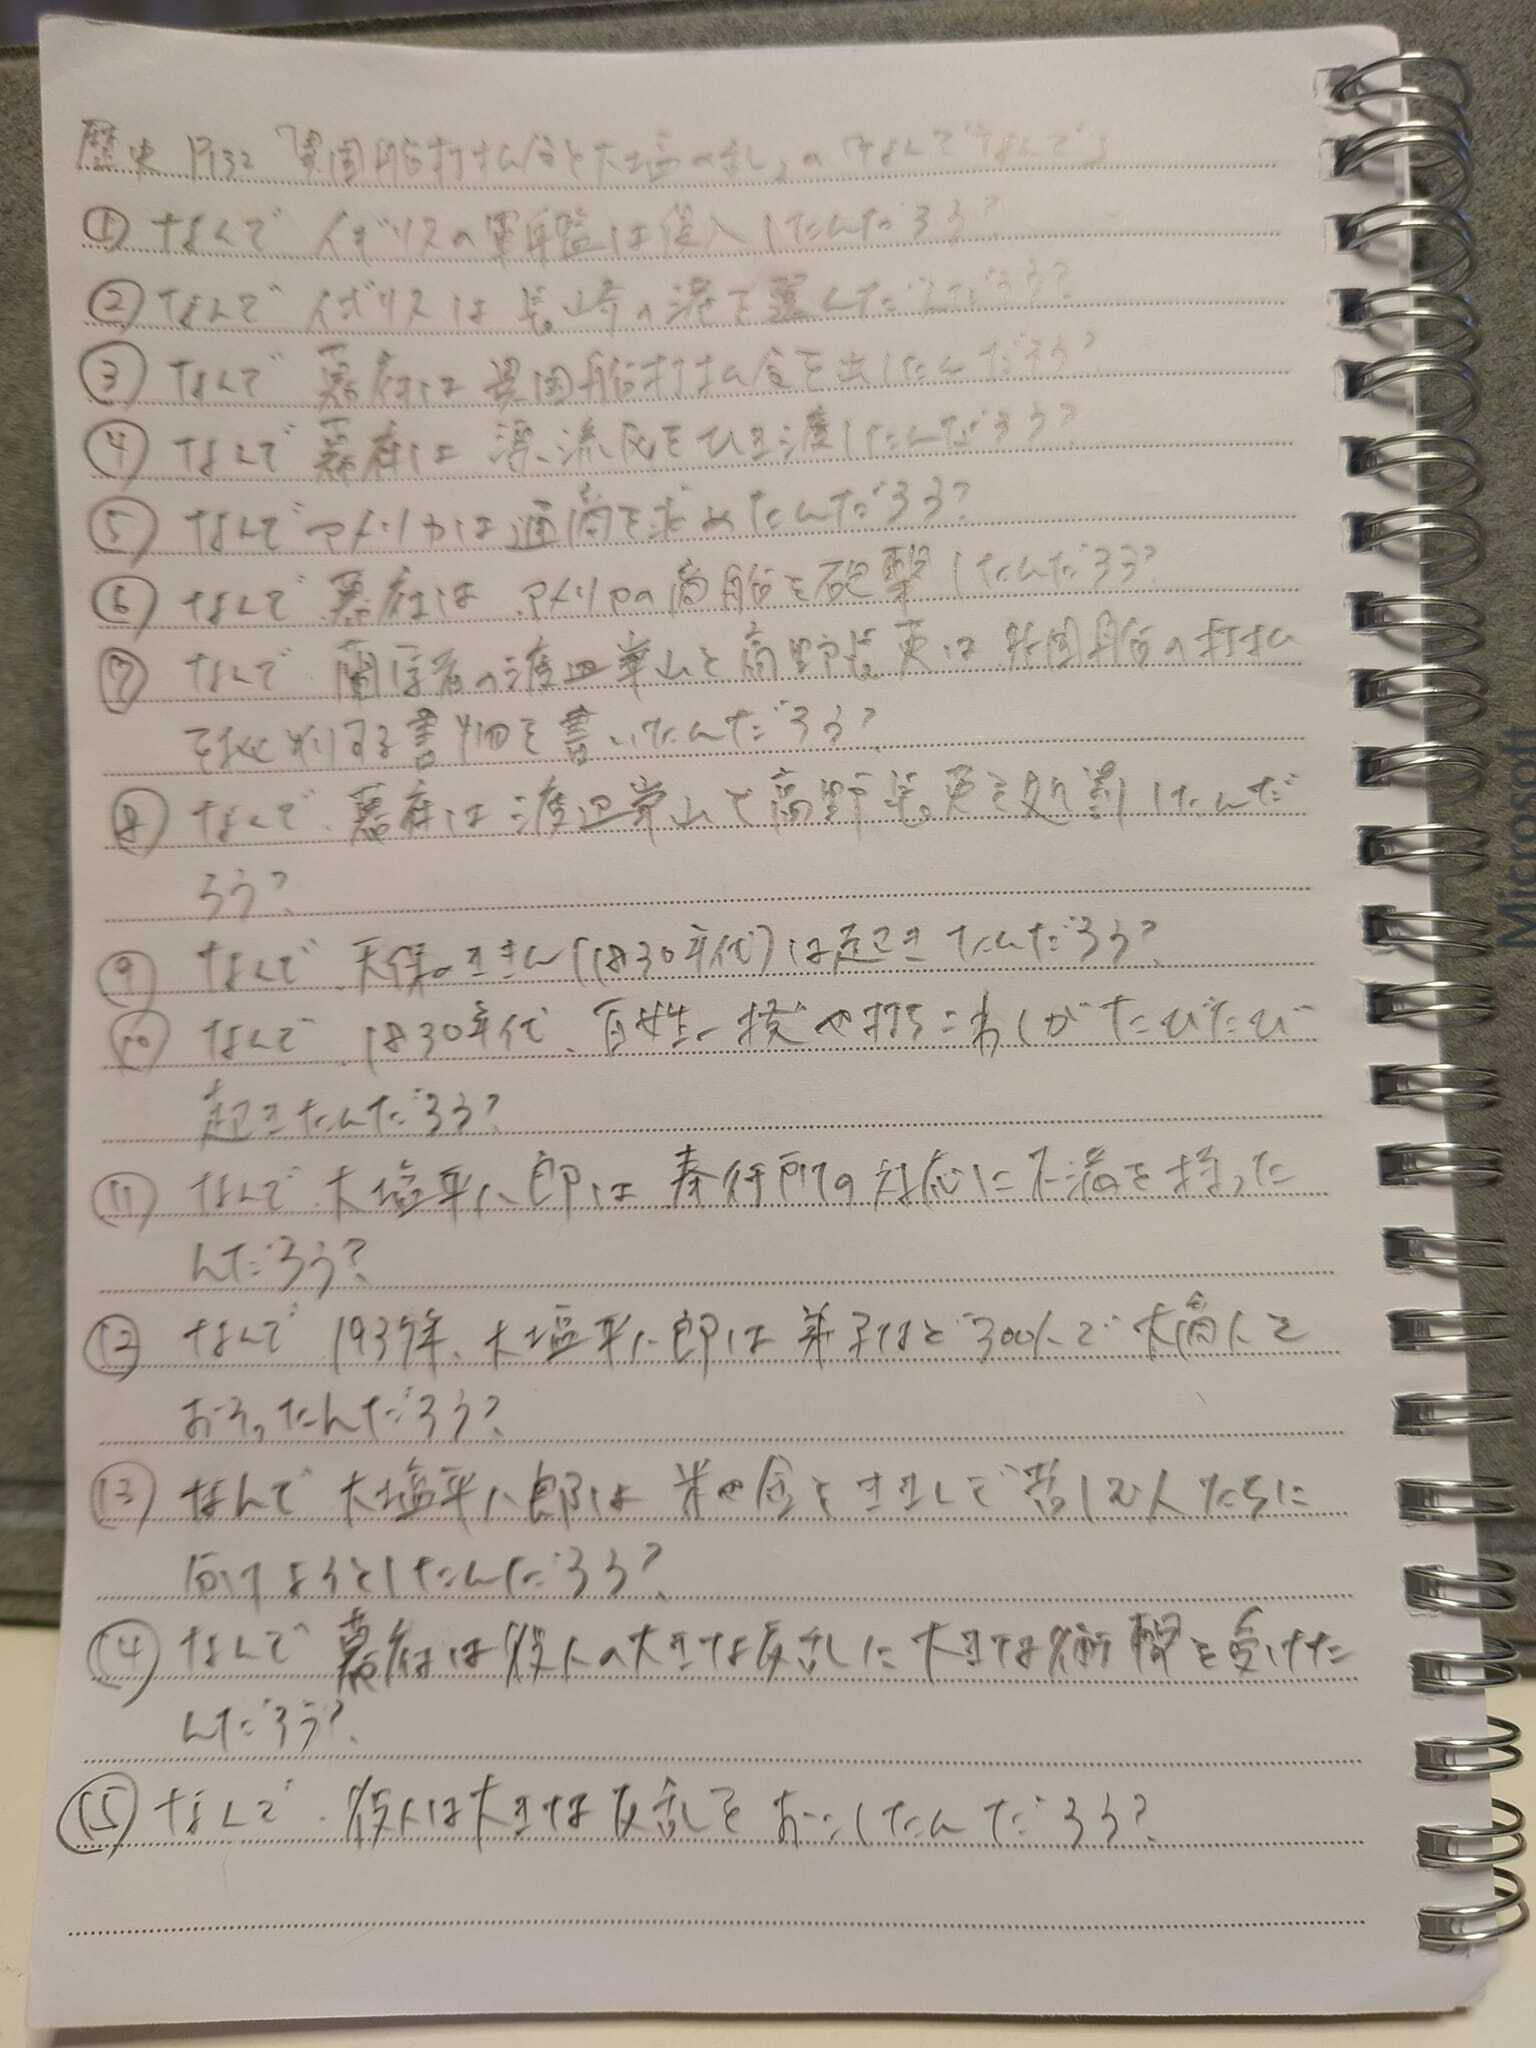 歴史 P132 「異国船打払令と大塩の乱」の「なんでなんで」
① なんで イギリスの軍艦は侵入したんだろう?
② なんで イギリスは長崎の港を選んだんだろう?
③ なんで 幕府は異国船打払令を出したんだろう?
④ なんで 幕府は漂流民をひき渡したんだろう?
⑤ なんで アメリカは通商を求めたんだろう?
⑥ なんで 幕府は アメリカの商船を砲撃したんだろう?
⑦ なんで 蘭学者の渡辺崋山と高野長英は 外国船の打払
を批判する書物を書いたんだろう?
⑧ なんで、幕府は渡辺崋山と高野長英を処罰したんだ
ろう?
⑨ なんで、天保のききん(1830年代)は起きたんだろう?
⑩ なんで、1830年代、百姓一揆や打ちこわしがたびたび
起きたんだろう?
⑪ なんで、大塩平八郎は 奉行所の対応に不満を持った
んだろう?
⑫ なんで 1937年、大塩平八郎は 弟子など300人で大商人を
おそったんだろう?
⑬ なんで 大塩平八郎は 米や金を 苦しむ人たちに
向けようとしたんだろう?
⑭ なんで 幕府は役人の大きな反乱に大きな衝撃を受けた
んだろう?
⑮ なんで、役人は大きな反乱を おこしたんだろう?
Microsoft